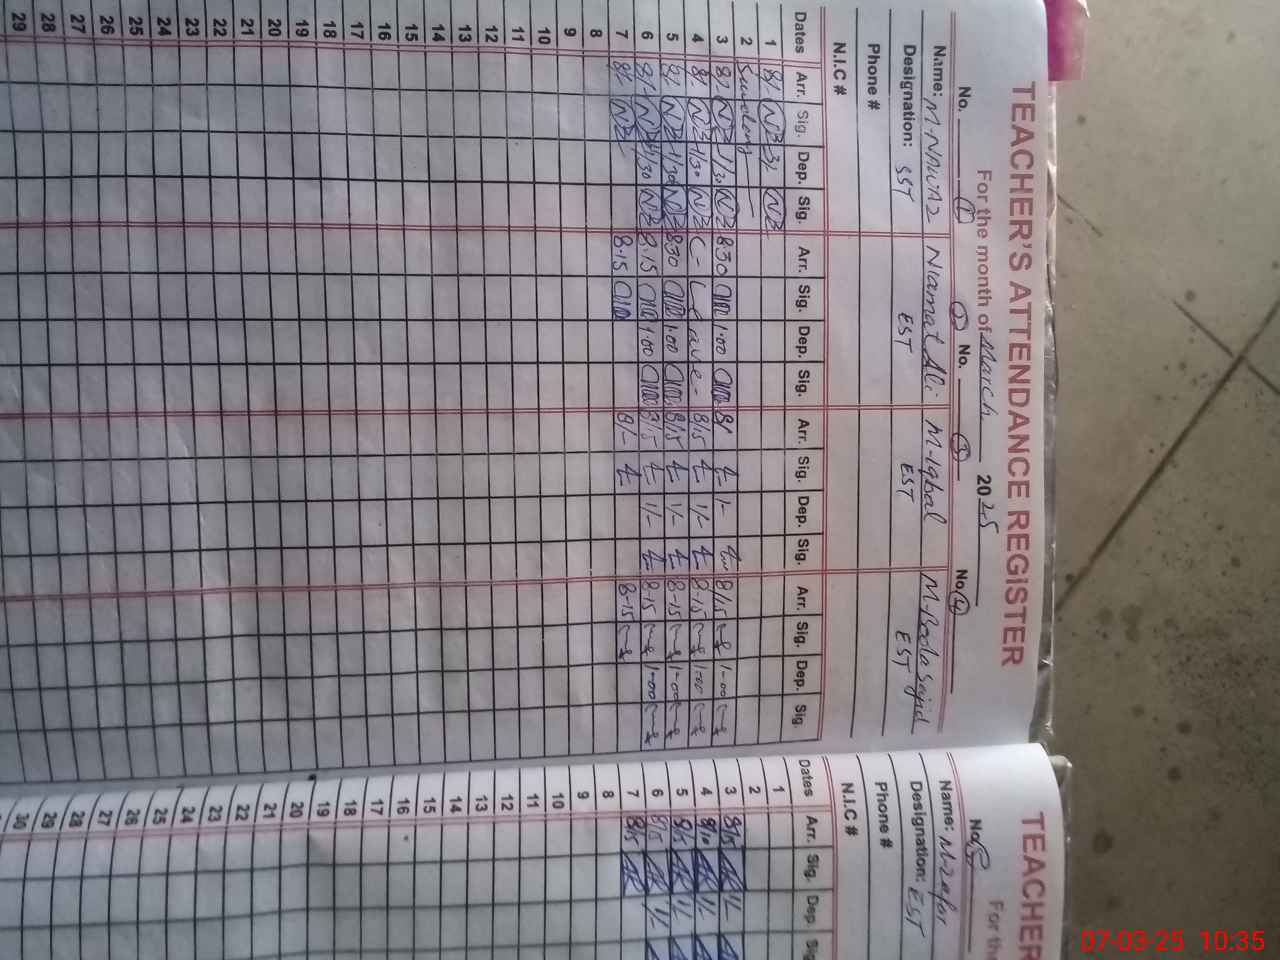 TEACHER'S ATTENDANCE REGISTER
For the month of March 2025
No. 1 2 No. 3 No 4
Name: M-NAWAZ Niamat Ali M-Iqbal
Designation: SST EST EST EST
Phone #
N.I.C #
Dates Arr. Sig. Dep. Sig. Arr. Sig. Dep. Sig. Arr. Sig. Dep. Sig. Arr. Sig. Dep. Sig.
1 8/- NB NB
2 Sunday
3 8/- NB 1/30 NB 8.30 1.00 8/- 1- 8/15 1-00
4 8/- NB 1/30 NB C-Leave- 8/15 1/- 8-15 1-00
5 8/- NB 1/30 NB 8.30 1.00 8/15 1/- 8-15 1-00
6 8/- NB 1/30 NB 8.15 1.00 8/15 1/- 8-15 1-00
7 8/- NB 8.15 8/- 8-15
8
9
10
11
12
13
14
15
16
17
18
19
20
21
22
23
24
25
26
27
28
29
TEACHER
For the
No 5
Name: M-Zafar
Designation: EST
Phone #
N.I.C #
Dates Arr. Sig. Dep. Sig
1
2
3 8/15 1/-
4 8/10 1/-
5 8/15 1/-
6 8/15 1/-
7 8/15
8
9
10
11
12
13
14
15
16
17
18
19
20
21
22
23
24
25
26
27
28
29
30
07-03-25 10:35